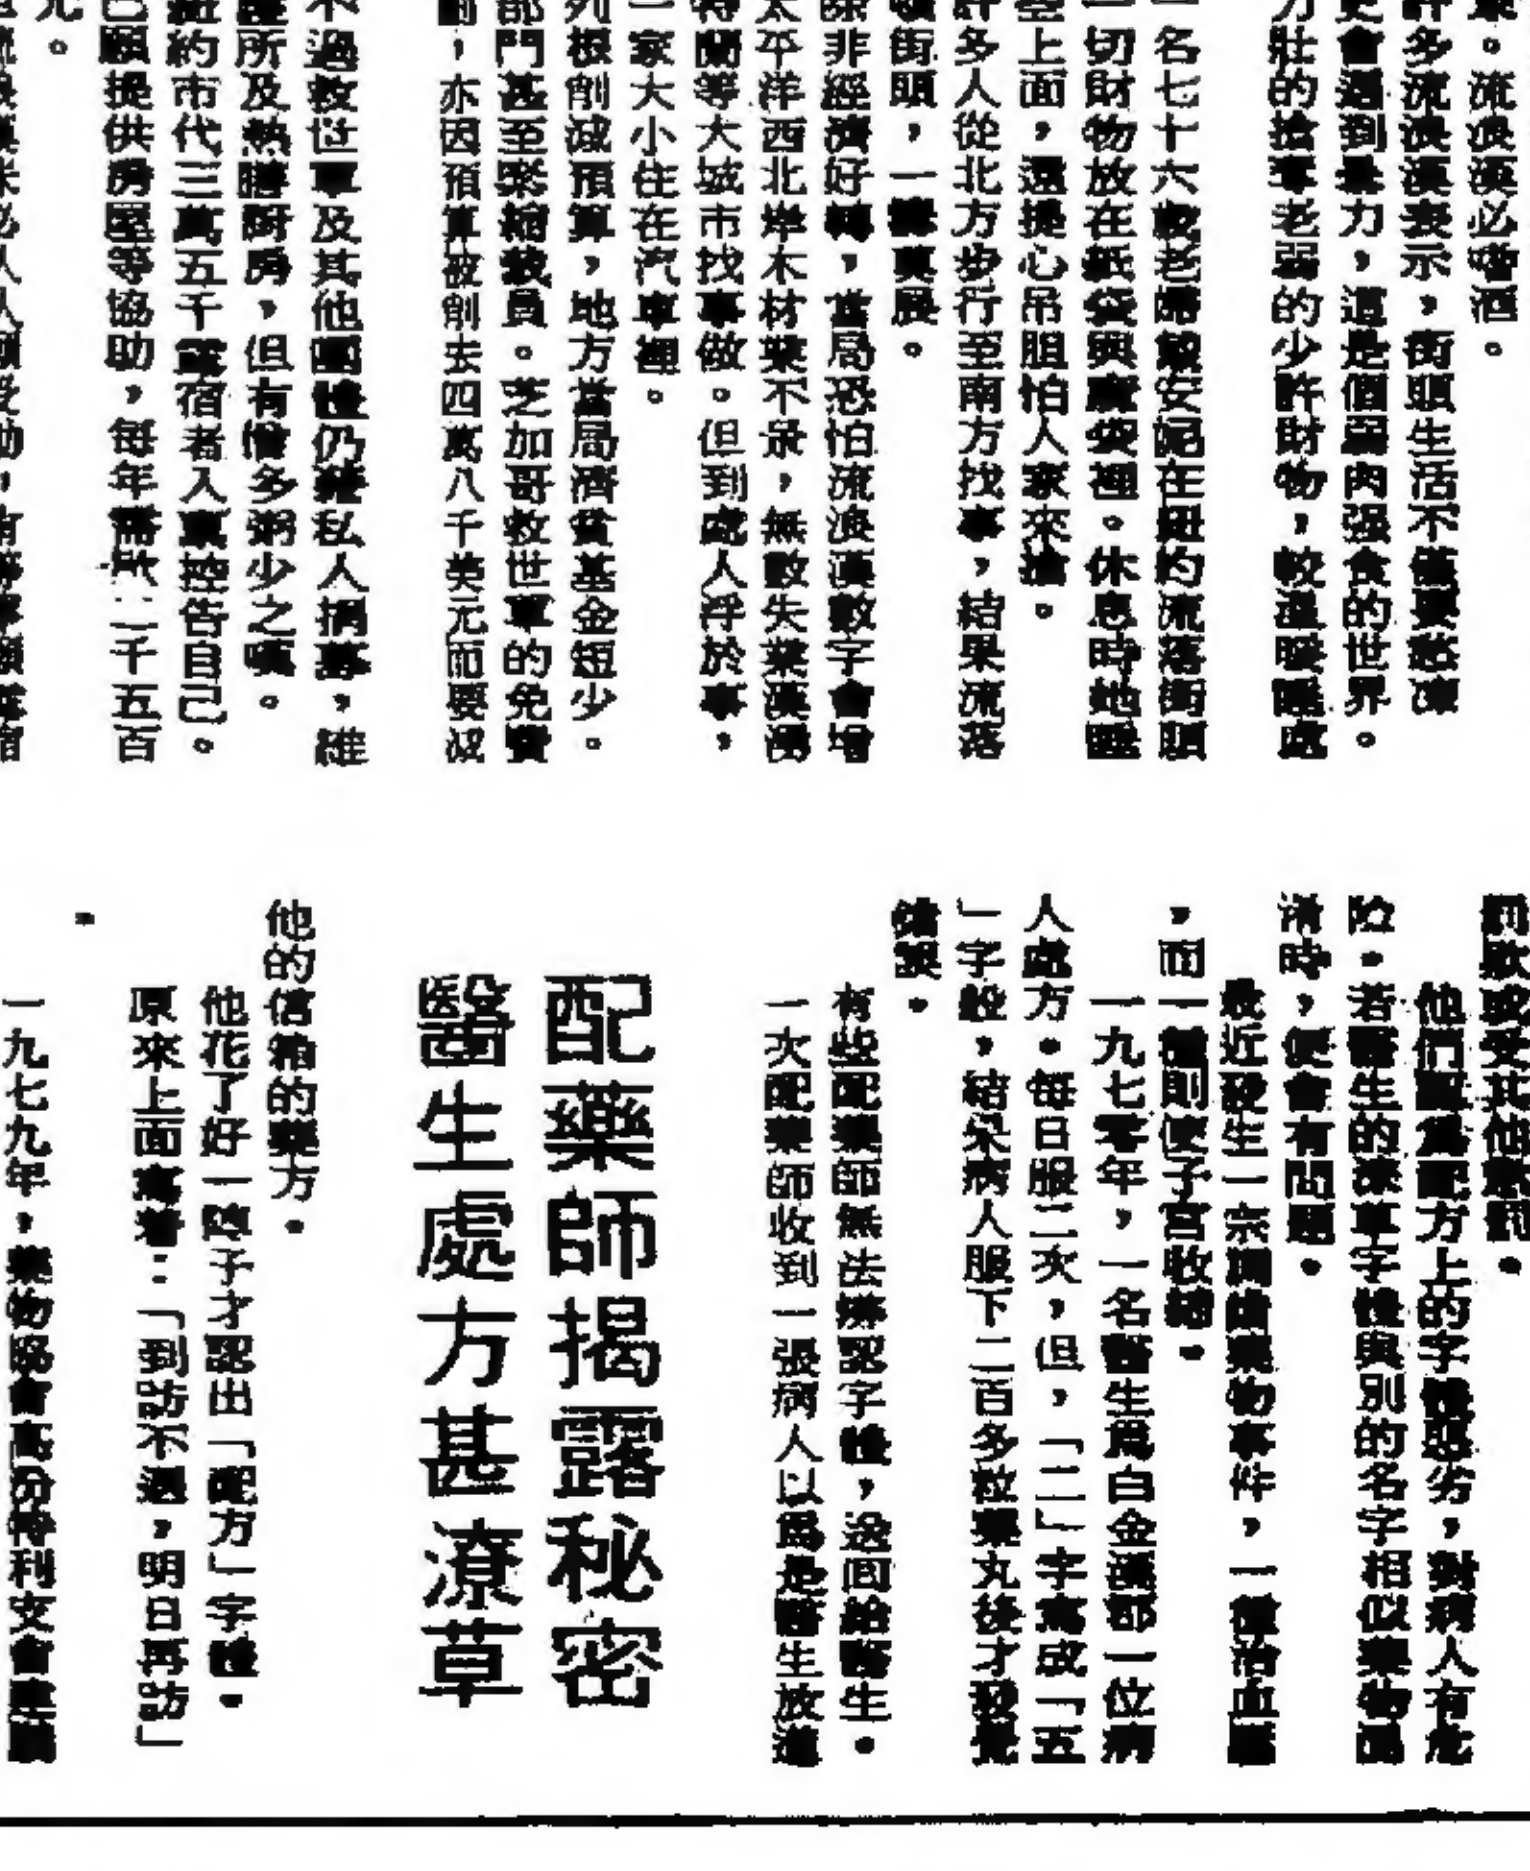 。流浪漢必嗜酒。
許多流浪漢表示，街頭生活不僅要愁凍
更會遇到暴力，這是個弱肉强食的世界。
力壯的搶奪老弱的少許財物，較溫暖睡處
一名七十六歲老婦戴安妮在紐約流落街頭
一切財物放在紙袋與膠袋裡。休息時她睡
上面，還提心吊胆怕人家來搶。
許多人從北方步行至南方找事，結果流落
街頭，一籌莫展。
除非經濟好轉，當局恐怕流浪漢數字會增
太平洋西北岸木材業不景，無數失業漢湧
特蘭等大城市找事做。但到處人浮於事，
一家大小住在汽車裡。
列根削減預算，地方當局濟貧基金短少。
部門甚至緊縮裁員。芝加哥救世軍的免費
劃，亦因預算被削去四萬八千美元而要減
不過救世軍及其他團體仍藉私人捐募，維
所及熱膳厨房，但有僧多粥少之嘆。
紐約市代三萬五千露宿者入稟控告自己。
已願提供房屋等協助，每年需款二千五百
元。
流浪漢未必人人願受助，有等寧願露宿
罰款或受其他懲罰。
他們認爲配方上的字體惡劣，對病人有危
險。若醫生的潦草字體與別的名字相似藥物混
淆時，便會有問題。
最近發生一宗調錯藥物事件，一種治血壓
，而一種則使子宮收縮。
一九七零年，一名醫生爲白金漢郡一位病
人處方。每日服二次，但，「二」字寫成「五
」字般，結果病人服下二百多粒藥丸後才發覺
錯誤。
有些配藥師無法辨認字體，送回給醫生。
一次配藥師收到一張病人以爲是醫生放進
配藥師揭露秘密
醫生處方甚潦草
他的信箱的藥方。
他花了好一陣子才認出「配方」字體。
原來上面寫着：「到訪不遇，明日再訪」
。
一九七九年，藥物協會高份特利支會